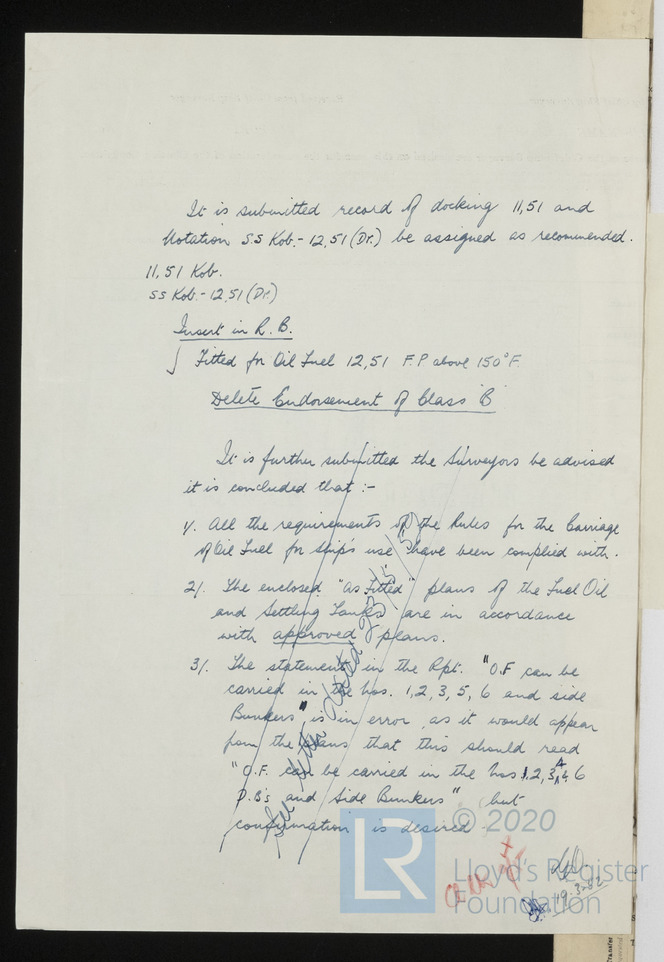 It is submitted record of docking 11,51 and
Notation S.S Kob.- 12,51 (Dr.) be assigned as recommended.
11,51 Kob.
SS Kob.- 12,51 (Dr.)
Insert in R.B.
Fitted for Oil Fuel 12,51 F.P above 150°F.
Delete Endorsement of Class 'B'
It is further submitted the Surveyors be advised
it is concluded that :-
1/. All the requirements of the Rules for the Carriage
of Oil Fuel for ship's use have been complied with.
2/. The enclosed "as Fitted" plans of the Fuel Oil
and Settling Tanks are in accordance
with approved plans.
3/. The statement in the Rpt. "O.F can be
carried in the nos. 1, 2, 3, 5, 6 and side
Bunkers" is in error, as it would appear
from the plans that this should read
"O.F. can be carried in the nos 1, 2, 3, 4, 6
D.B's and Side Bunkers" but
confirmation is desired
See letter dated
19.3.52
LR
© 2020
Lloyd's Register
Foundation